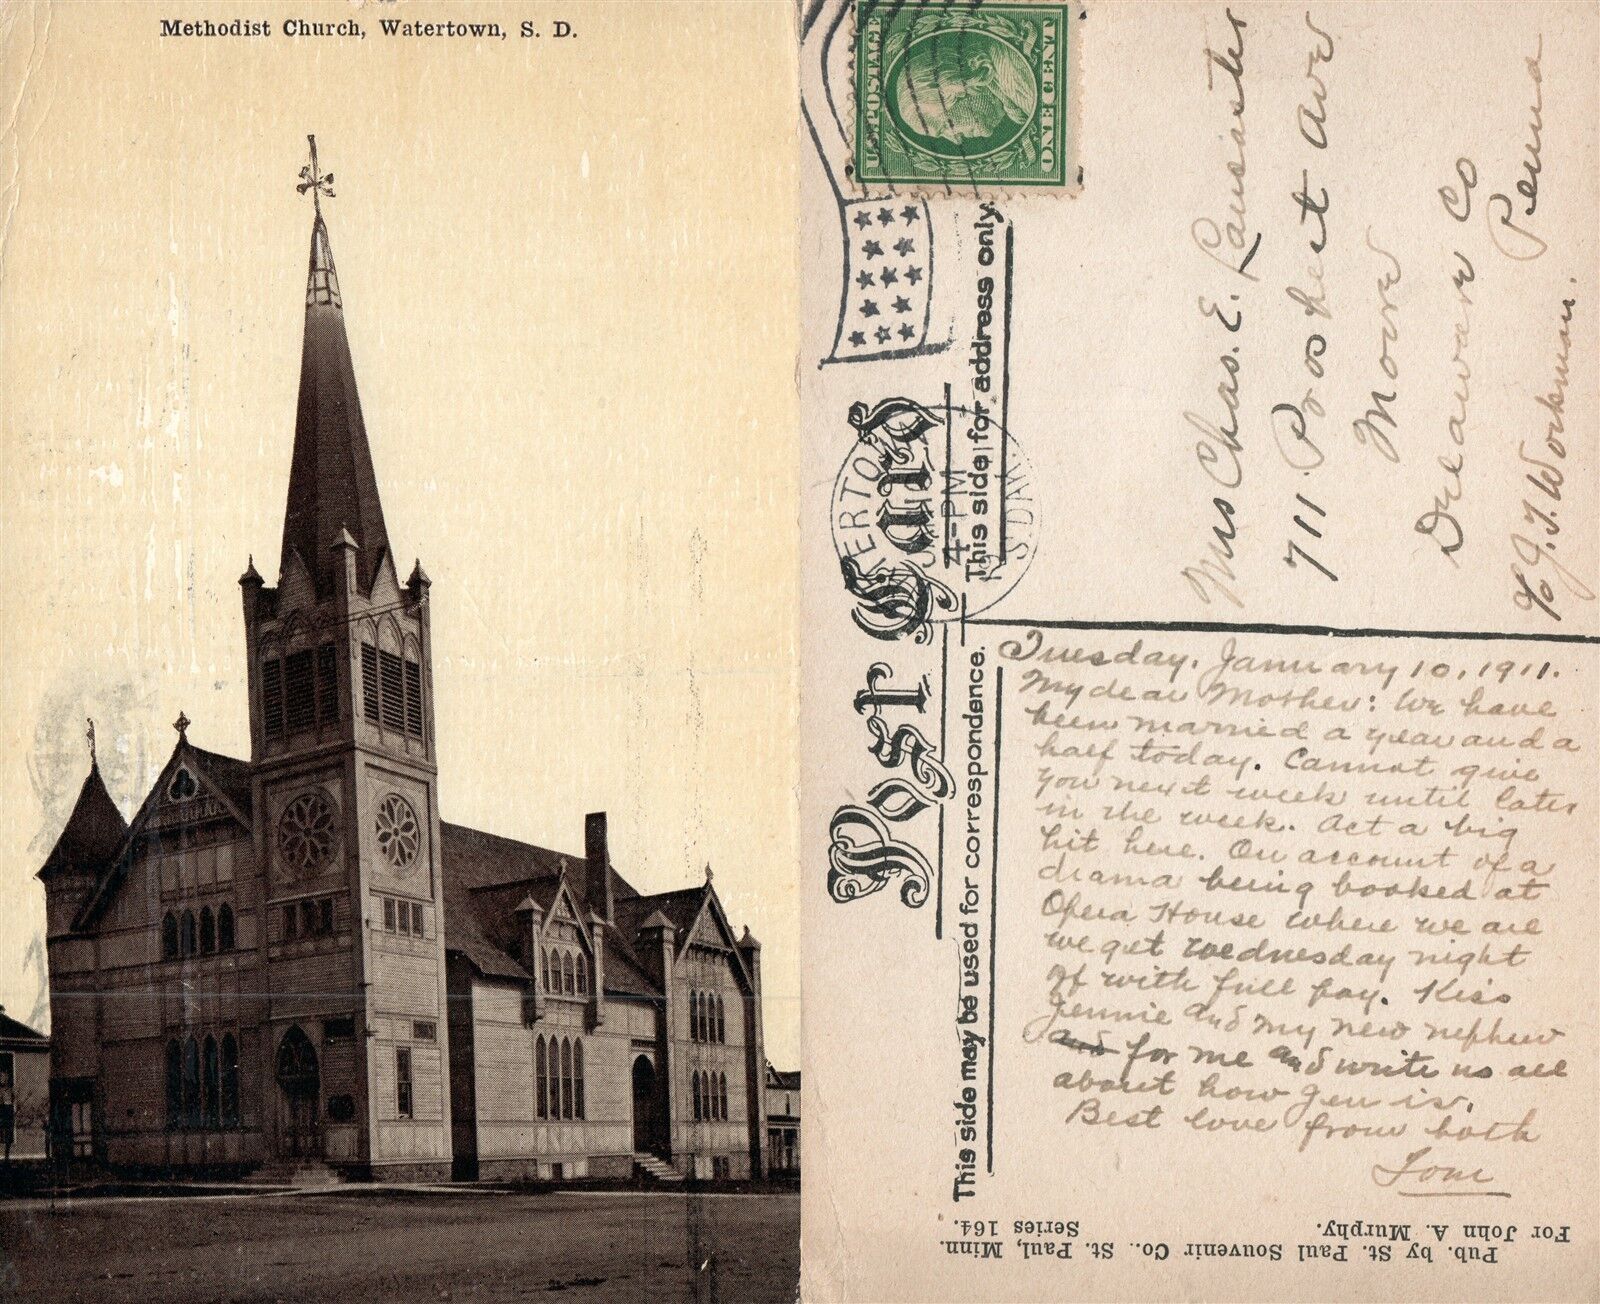 Methodist Church, Watertown, S. D.
U.S. POSTAGE
ONE CENT
Post Card
ERTOWN
4-PM
S.DAK.
This side may be used for correspondence.
This side for address only.
Mrs Chas. E. Lancaster
711 Prospect Ave
Moore
Delaware Co
Penna
℅ J. T. Workman.
Tuesday, January 10, 1911.
My dear Mother: We have
been married a year and a
half today. Cannot give
you next week until later
in the week. Act a big
hit here. On account of a
drama being booked at
Opera House where we are
we get wednesday night
off with full pay. Kiss
Jennie and my new nephew
and for me and write us all
about how Jen is.
Best love from both
Tom
Pub. by St. Paul Souvenir Co.. St. Paul, Minn.
For John A. Murphy. Series 164.